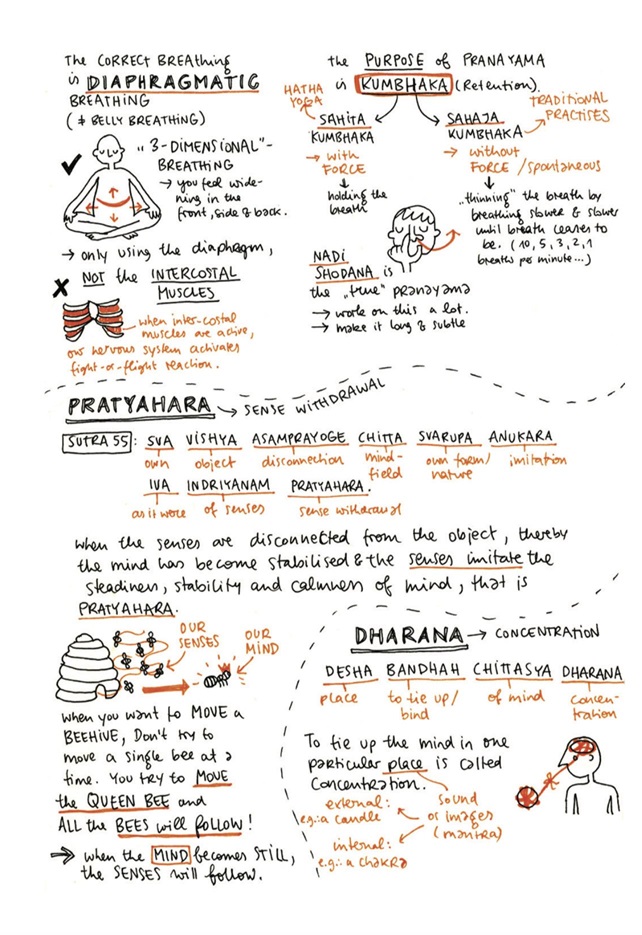 The CORRECT BREAThing
is DIAPHRAGMATIC
BREATHING
(≠ BELLY BREATHING)
„3-DIMENSIONAL"-
BREATHING
→ you feel wide-
ning in the
front, side & back.
→ only using the diaphragm,
NOT the INTERCOSTAL
MUSCLES
when inter-costal
muscles are active,
our nervous system activates
fight-or-flight reaction.
the PURPOSE of PRANAYAMA
is KUMBHAKA (Retention).
HATHA
YOGA
SAHITA
KUMBHAKA
→ with
FORCE
holding the
breath
TRADITIONAL
PRACTISES
SAHAJA
KUMBHAKA
→ without
FORCE / spontaneous
„thinning" the breath by
breathing slower & slower
until breath ceases to
be. (10, 5, 3, 2, 1
breaths per minute...)
NADI
SHODANA is
the „true" PRANAYAMA
→ work on this a lot.
→ make it long & subtle
PRATYAHARA → SENSE WITHDRAWAL
SUTRA 55: SVA VISHYA ASAMPRAYOGE CHITTA SVARUPA ANUKARA
own object disconnection mind-field own form/nature imitation
IVA INDRIYANAM PRATYAHARA.
as it were of senses sense withdrawal
When the senses are disconnected from the object, thereby
the mind has become stabilised & the senses imitate the
steadiness, stability and calmness of mind, that is
PRATYAHARA.
OUR
SENSES
OUR
MIND
When you want to MOVE a
BEEHIVE, Don't try to
move a single bee at a
time. You try to MOVE
the QUEEN BEE and
ALL the BEES will follow!
⇒ when the MIND becomes STILL,
the SENSES will follow.
DHARANA → CONCENTRATION
DESHA BANDHAH CHITTASYA DHARANA
place to tie up/bind of mind concen-tration
To tie up the mind in one
particular place is called
Concentration.
external:
e.g.: a candle
sound
or images
(mantra)
internal:
e.g.: a chakra